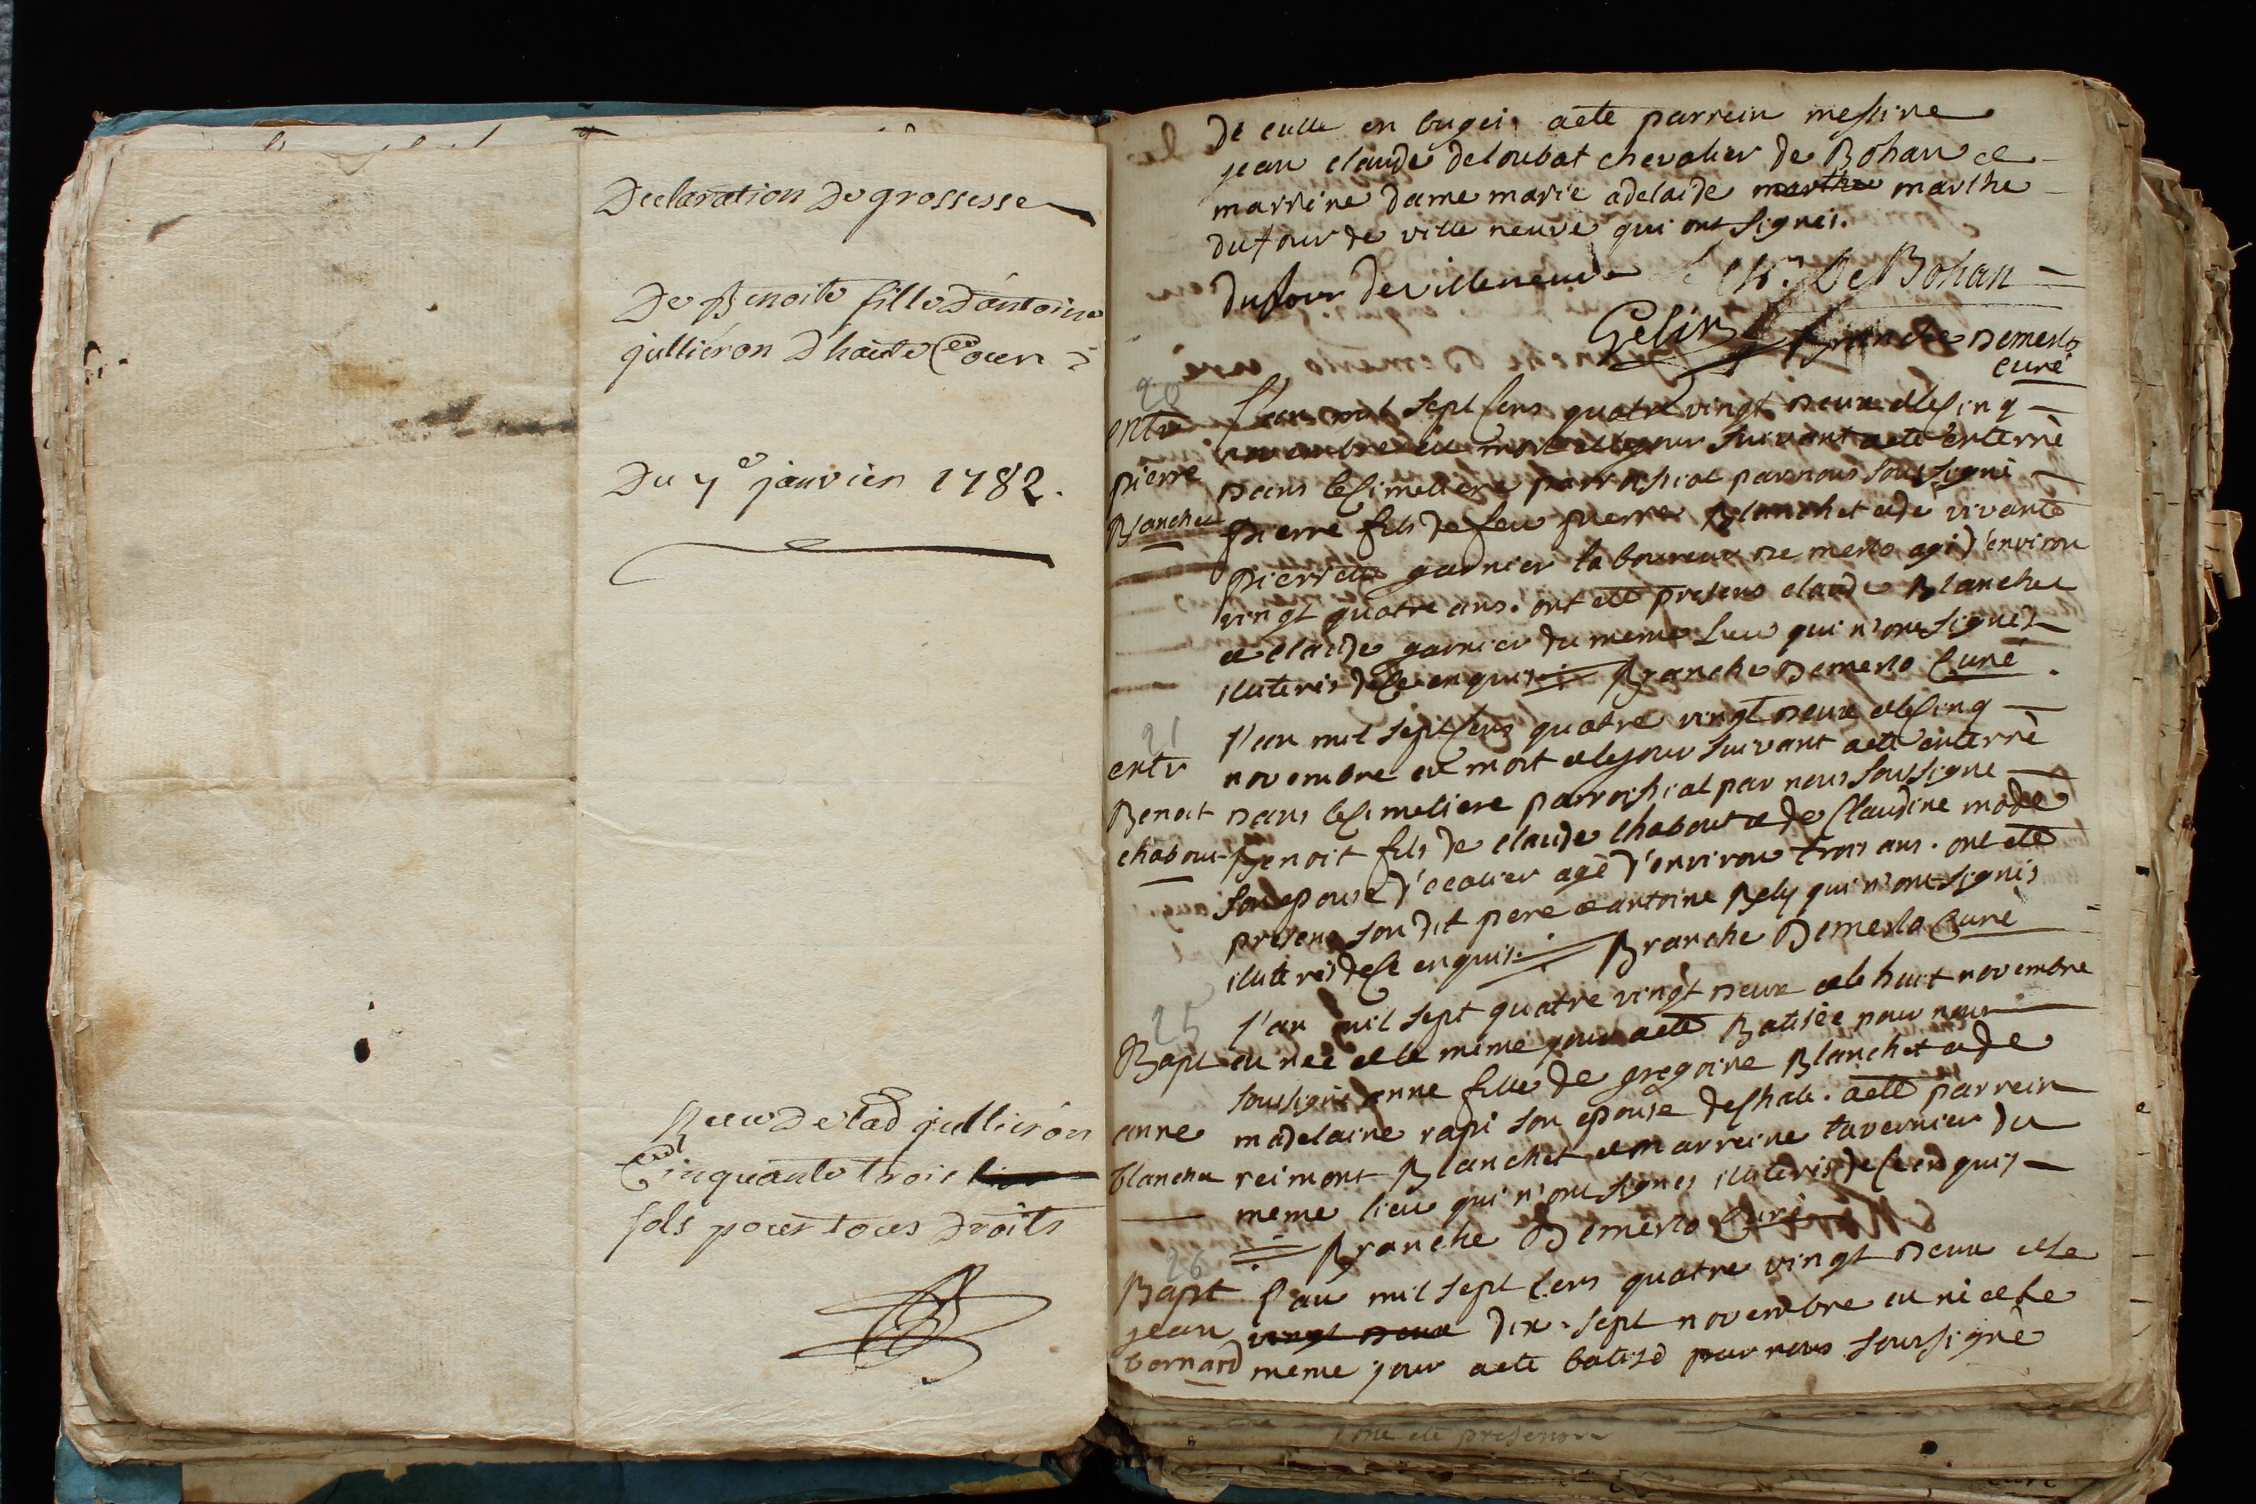 Declaration De grossesse
De Benoite fille D'antoine
jullieron D'haute Cour
Du 7e janvier 1782.
Recu De lad jullieron
Cinquante trois
sols pour tous Droits
De culle en bugei, aete parrein messire
jean claude deloubat chevalier de Bohan &
marrine dame marie adelaide marthe marthe
dufour de ville neuve qui ont signés.
dufour Devilleneuve le chr. De Bohan
Gelin Branche Demerlo
Curé
20
entr L'an mil sept Cens quatre vingt Deux & le Cinq
novembre est mort & le jour suivant aete enterré
pierre Dans le Cimetiere parrochial par nous soussigné
Blanchet pierre fils de feu pierre Blanchet & de vivante
pierrette garnier laboureur De merlo agé d'environ
vingt quatre ans. ont eté presens claude Blanchet
& claude garnier du meme Lieu qui n'ont signés
illiteris de Ce enquis Branche Demerlo Curé.
21
l'an mil sept Cens quatre vingt Deux & le Cinq
entr novembre est mort & le jour suivant aete enterré
Benoit Dans le Cimetiere parrochial par nous soussigné
chabout Benoit fils de claude chabout & de Claudine mode
son epouse d'ecolier agé d'environ trois ans. ont eté
presens son dit pere & antoine Rely qui n'ont signés
illiteris de Ce enquis. Branche Demerlo Curé
25
l'an mil sept quatre vingt Deux & le huit novembre
Bapt est née & le même jour aeté Batisée pour nous
soussigné anne fille de gregoire Blanchet & de
anne madelaine rapi son epouse deshali. aeté parrein
blanchet reimont Blanchet & marreine tavernier du
meme lieu qui n'ont signes illiteris de Ce enquis
Branche Demerlo Curé
26
Bapt L'an mil sept Cens quatre vingt Deux & le
jean vingt Deux dix-sept novembre est né & le
bornard meme jour aeté batisé par nous soussigné
ont eté presens